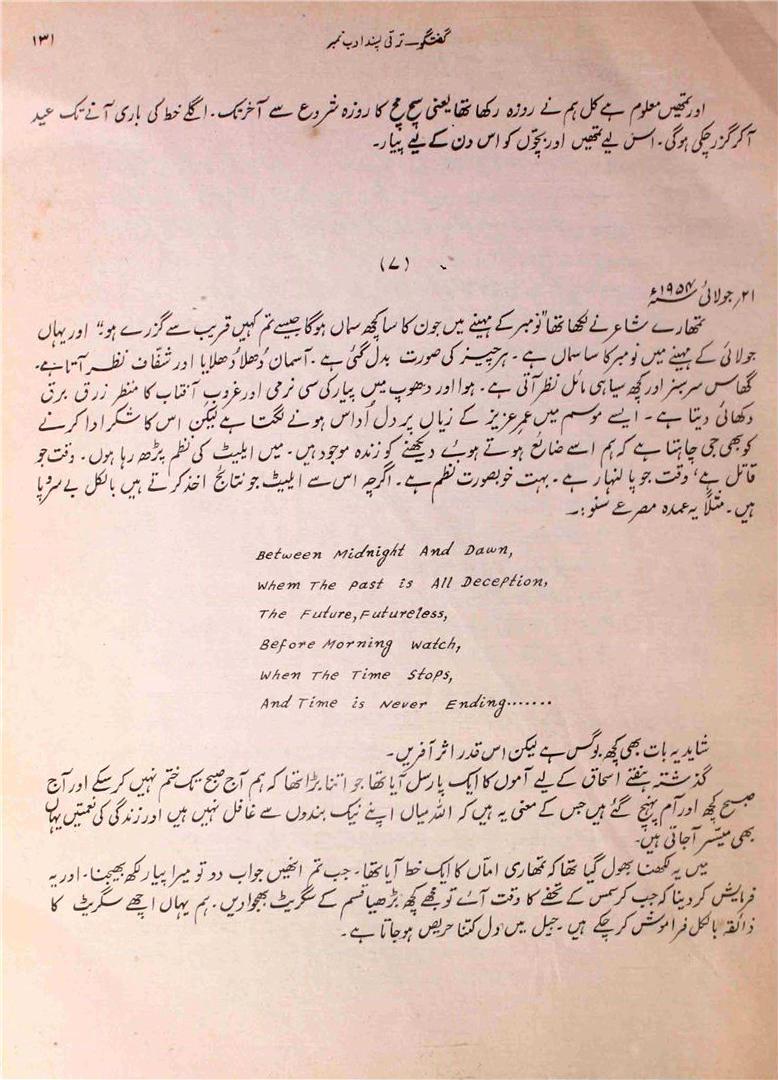 گفتگو۔ ترقی پسند ادب نمبر
۱۳۱
اور تمھیں معلوم ہے کل ہم نے روزہ رکھا تھا یعنی سچ مچ کا روزہ شروع سے آخر تک۔ اگلے خط کی باری آنے تک عید
آکر گزر چکی ہوگی۔ اس لیے تمھیں اور بچّوں کو اس دن کے لیے پیار۔
(۷)
۲۱؍ جولائی ۱۹۵۴ء
تمھارے شاعر نے لکھا تھا "نومبر کے مہینے میں جون کا سا کچھ سماں ہوگا جیسے تم کہیں قریب سے گزرے ہو" اور یہاں
جولائی کے مہینے میں نومبر کا سا سماں ہے۔ ہر چیز کی صورت بدل گئی ہے۔ آسمان دُھلا دُھلایا اور شفّاف نظر آتا ہے۔
گھاس سرسبز اور کچھ سیاہی مائل نظر آتی ہے۔ ہوا اور دھوپ میں پیار کی سی نرمی اور غروبِ آفتاب کا منظر زرق برق
دکھائی دیتا ہے۔ ایسے موسم میں عمر عزیز کے زیاں پر دل اُداس ہونے لگتا ہے لیکن اس کا شکر ادا کرنے
کو بھی جی چاہتا ہے کہ ہم اسے ضائع ہوتے ہوئے دیکھنے کو زندہ موجود ہیں۔ میں ایلیٹ کی نظم پڑھ رہا ہوں۔ وقت جو
قاتل ہے، وقت جو پالنہار ہے۔ بہت خوبصورت نظم ہے۔ اگرچہ اس سے ایلیٹ جو نتائج اخذ کرتے ہیں بالکل بے سروپا
ہیں۔ مثلاً یہ عمدہ مصرعے سنو:۔
Between Midnight And Dawn,
Whem The Past is All Deception,
The Future, Futureless,
Before Morning Watch,
When The Time Stops,
And Time is Never Ending.......
شاید یہ بات بھی کچھ بوگس ہے لیکن اس قدر اثر آفریں۔
گذشتہ ہفتے اسحاق کے لیے آموں کا ایک پارسل آیا تھا جو اتنا بڑا تھا کہ ہم آج صبح تک ختم نہیں کر سکے اور آج
صبح کچھ اور آم پہنچ گئے ہیں جس کے معنی یہ ہیں کہ اللہ میاں اپنے نیک بندوں سے غافل نہیں ہیں اور زندگی کی نعمتیں یہاں
بھی میسّر آجاتی ہیں۔
میں یہ لکھنا بھول گیا تھا کہ تمھاری امّاں کا ایک خط آیا تھا۔ جب تم انھیں جواب دو تو میرا پیار لکھ بھیجنا۔ اور یہ
فرمایش کر دینا کہ جب کرسمس کے تحفے کا وقت آئے تو مجھے کچھ بڑھیا قسم کے سگریٹ بھجوا دیں۔ ہم یہاں اچھے سگریٹ کا
ذائقہ بالکل فراموش کر چکے ہیں۔ جیل میں دل کتنا حریص ہو جاتا ہے۔